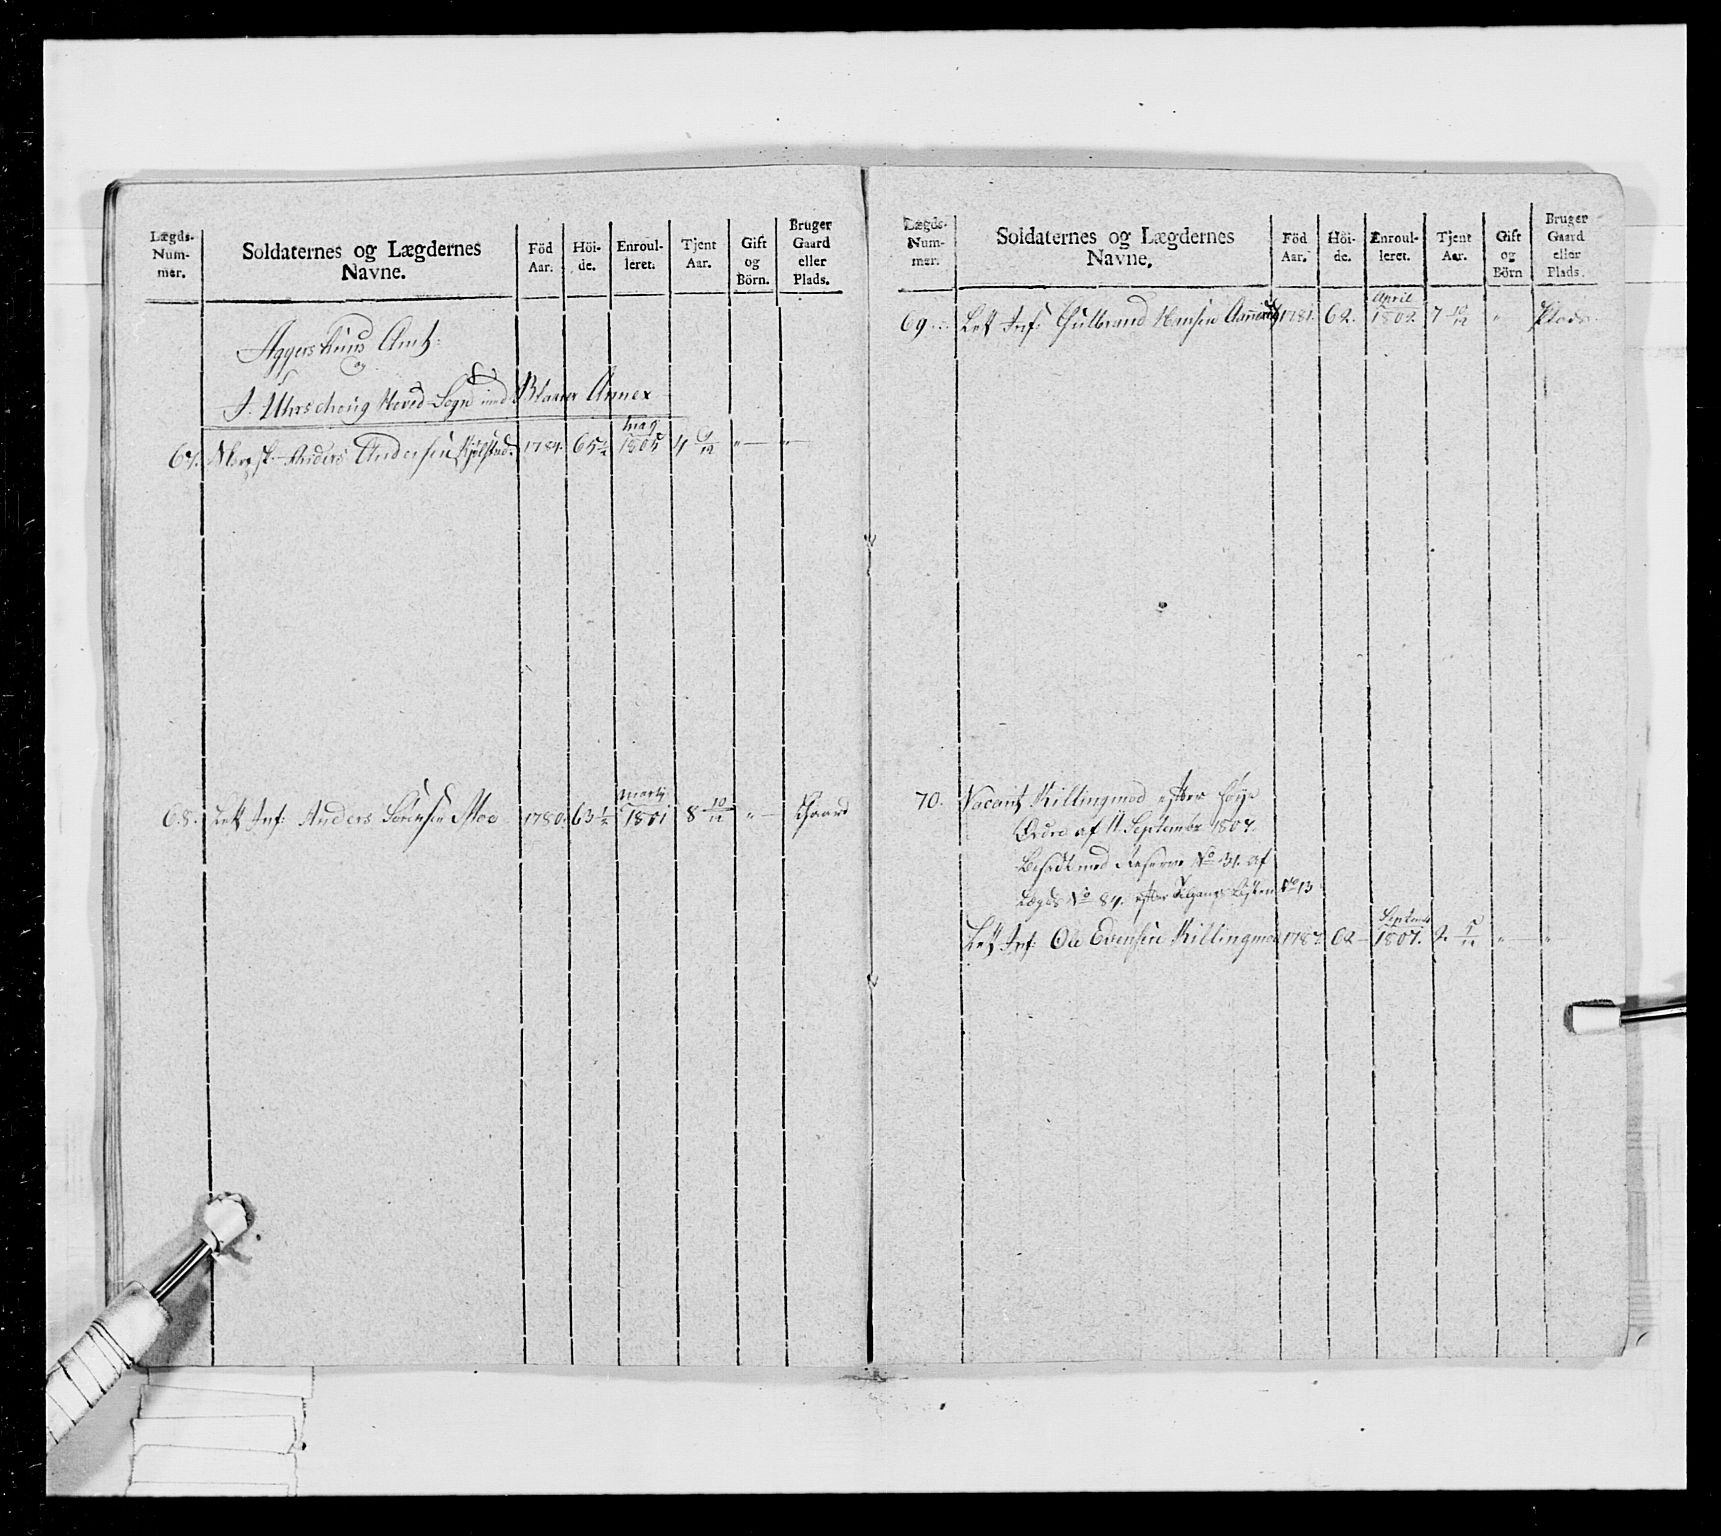 Lægds-
Num-
mer.
Soldaternes og Lægdernes
Navne.
Föd
Aar.
Höi-
de.
Enroul-
leret.
Tjent
Aar.
Gift
og
Börn.
Bruger
Gaard
eller
Plads.
Aggershuus Amt.
og
Hoved-Sogn med Blaker Annex
67. Anders Andersen 1784. 65½ May 1805 4 " "
68. Lett Inf: Anders Sörensen Moe 1780. 63½ Marty 1801 8 10/12 " Gaard
Lægds-
Num-
mer.
Soldaternes og Lægdernes
Navne.
Föd
Aar.
Höi-
de.
Enroul-
leret.
Tjent
Aar.
Gift
og
Börn
Bruger
Gaard
eller
Plads.
69. Lett Inf: Gulbrand Hansen 1781. 62. April 1802. 7 10/12 " Plads.
70. Vacant Killingmoe efter höye
Ordre af 11 Septembr 1807.
Besadt med Reserve No 31. af
Lægds No 84. efter Afgangs Listen No 13
Lett Inf: Ole Evensen Killingmoe 1787. 62 Septemb 1807. 2 5/12 " "